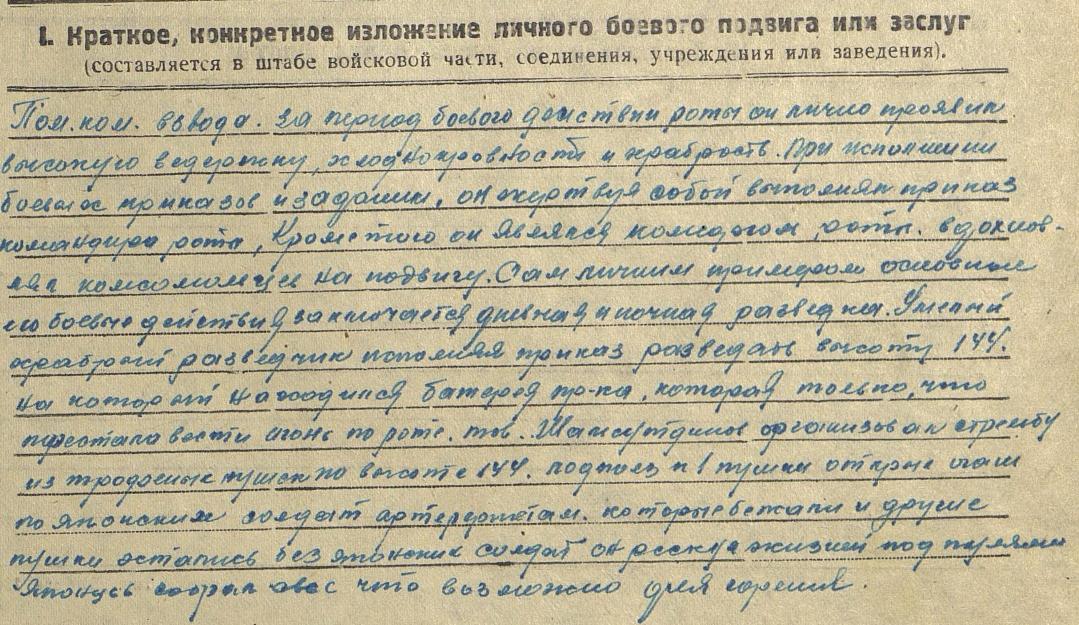 I. Краткое, конкретное изложение личного боевого подвига или заслуг
(составляется в штабе войсковой части, соединения, учреждения или заведения).
Пом. ком. взвода. За период боевого действии роты он лично проявил
высокую ведержку, хлоднокровности и храбрость. При исполнении
боевых приказов и задании, он жертвуя собой выполнял приказ
командира роты, Кроме того он являлся комсоргом роты. вдохнов-
лял комсомольцев на подвигу. Сам личним примером основные
его боевые действия заключается дневная и ночная разведка. Умелый
храбрый разведчик исполняя приказ разведать высоту 144.
на которой находился батерея пр-ка, которая только, что
перестала вести огонь по роте. тов. Шамсутдинов организовал стрельбу
из трофейных пушек по высоте 144. подполз к 1 пушки открыл огонь
по Японским солдат которые бежали и другие
пушки остались без японских солдат он рескуя жизней под пулями
Японцев собрал овес что возможно для